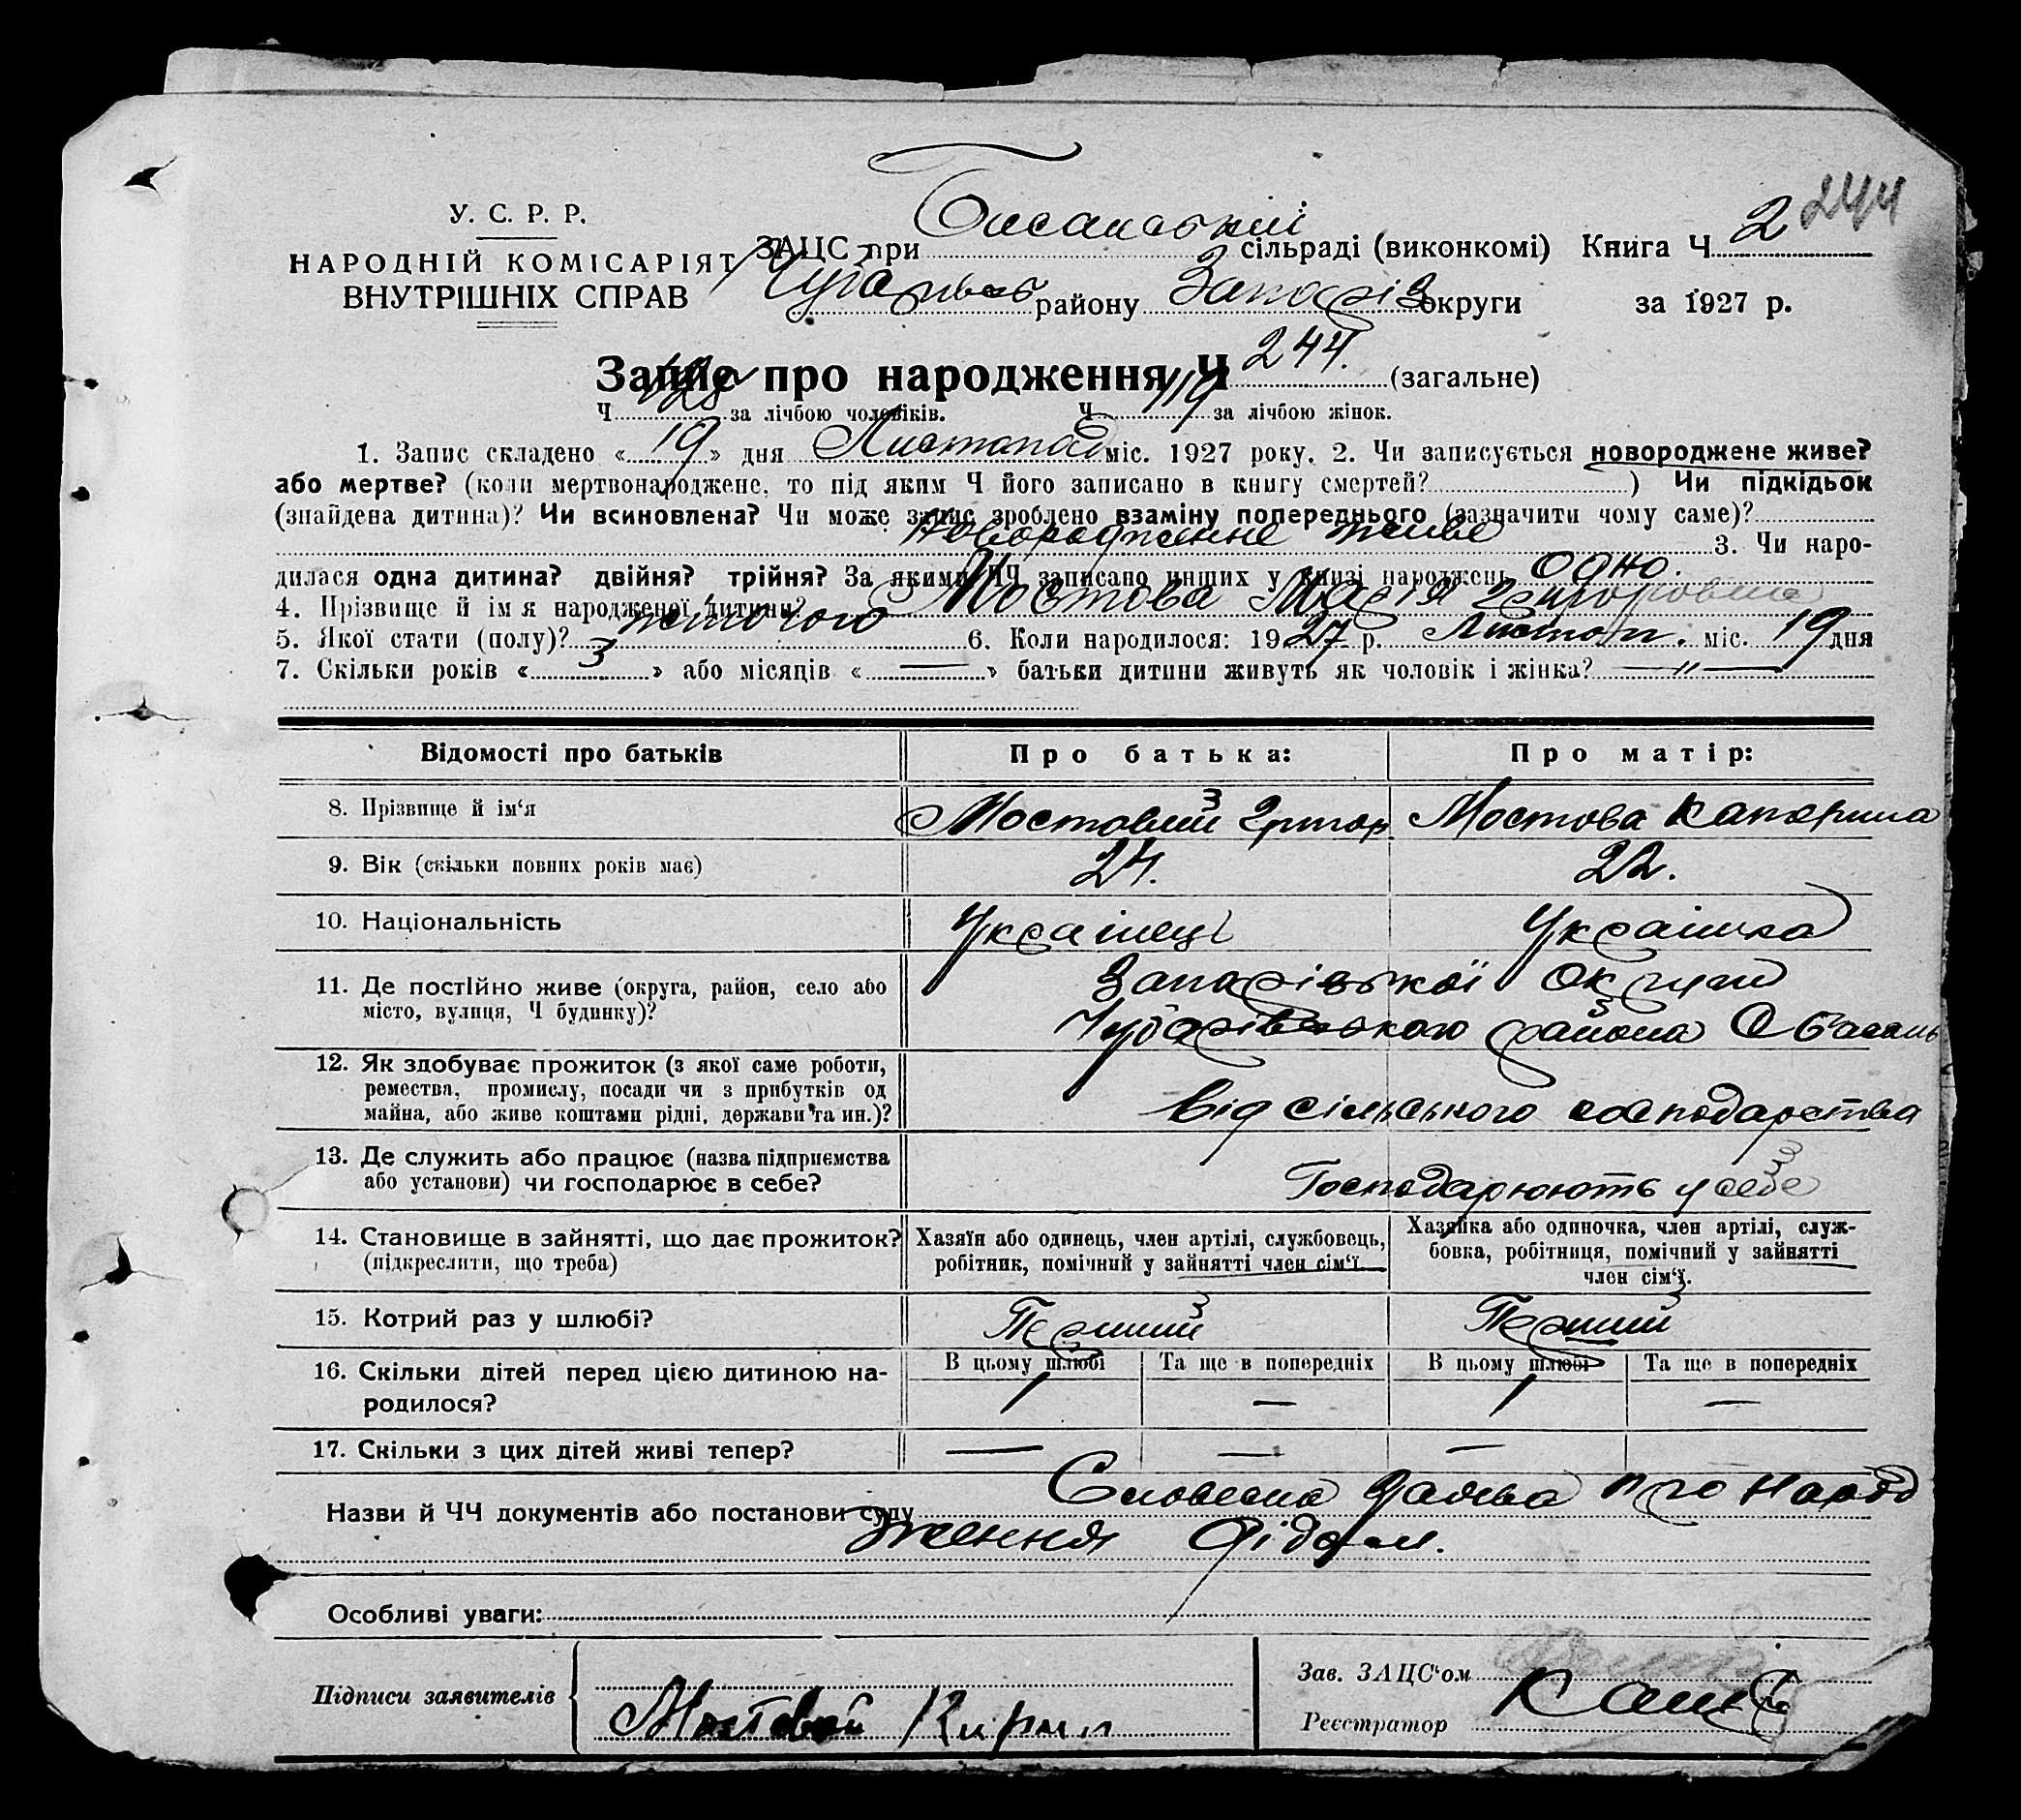 244
У. С. Р. Р.
НАРОДНІЙ КОМІСАРІЯТ
ВНУТРІШНІХ СПРАВ
ЗАЦС при сільраді (виконкомі) Книга Ч 2
району Запоріз округи за 1927 р.
Запис про народження Ч 244. (загальне)
Ч 125 за лічбою чоловіків. Ч 119 за лічбою жінок.
1. Запис складено «19» дня Листопад міс. 1927 року. 2. Чи записується новороджене живе?
або мертве? (коли мертвонароджене, то під яким Ч його записано в книгу смертей? ) Чи підкідьок
(знайдена дитина)? Чи всиновлена? Чи може запис зроблено взаміну попереднього (зазначити чому саме)?
Новорожденне живе 3. Чи наро-
дилася одна дитина? двійня? трійня? За якими ЧЧ записано инших у книзі народжень одно.
4. Прізвище й ім я народженої дитини? Мостова Марія Григоровна
5. Якої стати (полу)? жіночого 6. Коли народилося: 1927 р. Листоп. міс. 19 дня
7. Скільки років «3» або місяців «—» батьки дитини живуть як чоловік і жінка? — " —
Відомості про батьків Про батька: Про матір:
8. Прізвище й ім‘я Мостовий Григор Мостова Катерина
9. Вік (скільки повних років має) 24. 22.
10. Національність Українець Українка
11. Де постійно живе (округа, район, село або Запорізької округи
місто, вулиця, Ч будинку)? Чубарівського района С Басань
12. Як здобуває прожиток (з якої саме роботи,
ремества, промислу, посади чи з прибутків од
майна, або живе коштами рідні, держави та ин.)? Від сільського господарства
13. Де служить або працює (назва підприємства
або установи) чи господарює в себе? Господарюють у себе
14. Становище в зайнятті, що дає прожиток? Хазяїн або одинець, член артілі, службовець, Хазяйка або одиночка, член артілі, служ-
(підкреслити, що треба) робітник, помічний у зайнятті член сім‘ї бовка, робітниця, помічний у зайнятті
член сім‘ї.
15. Котрий раз у шлюбі? Перший Перший
16. Скільки дітей перед цією дитиною на- В цьому шлюбі Та ще в попередніх В цьому шлюбі Та ще в попередніх
родилося? 1 — 1 —
17. Скільки з цих дітей живі тепер? — — —
Назви й ЧЧ документів або постанови суду Словесна заява про народ
ження дідом.
Особливі уваги:
Зав. ЗАЦС‘ом
Підписи заявителів Мостовой Кирил
Реєстратор